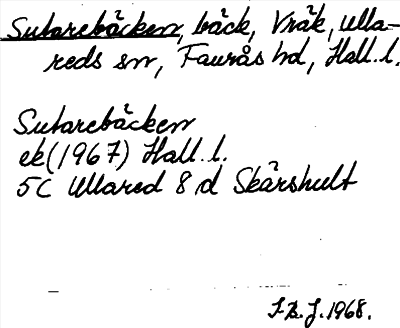 Sutarebäcken, bäck, Vräk, Ulla-
reds sn, Faurås hd, Hall. l.
Sutarebäcken
ek (1967) Hall. l.
5C Ullared 8 d Skärshult
1968.